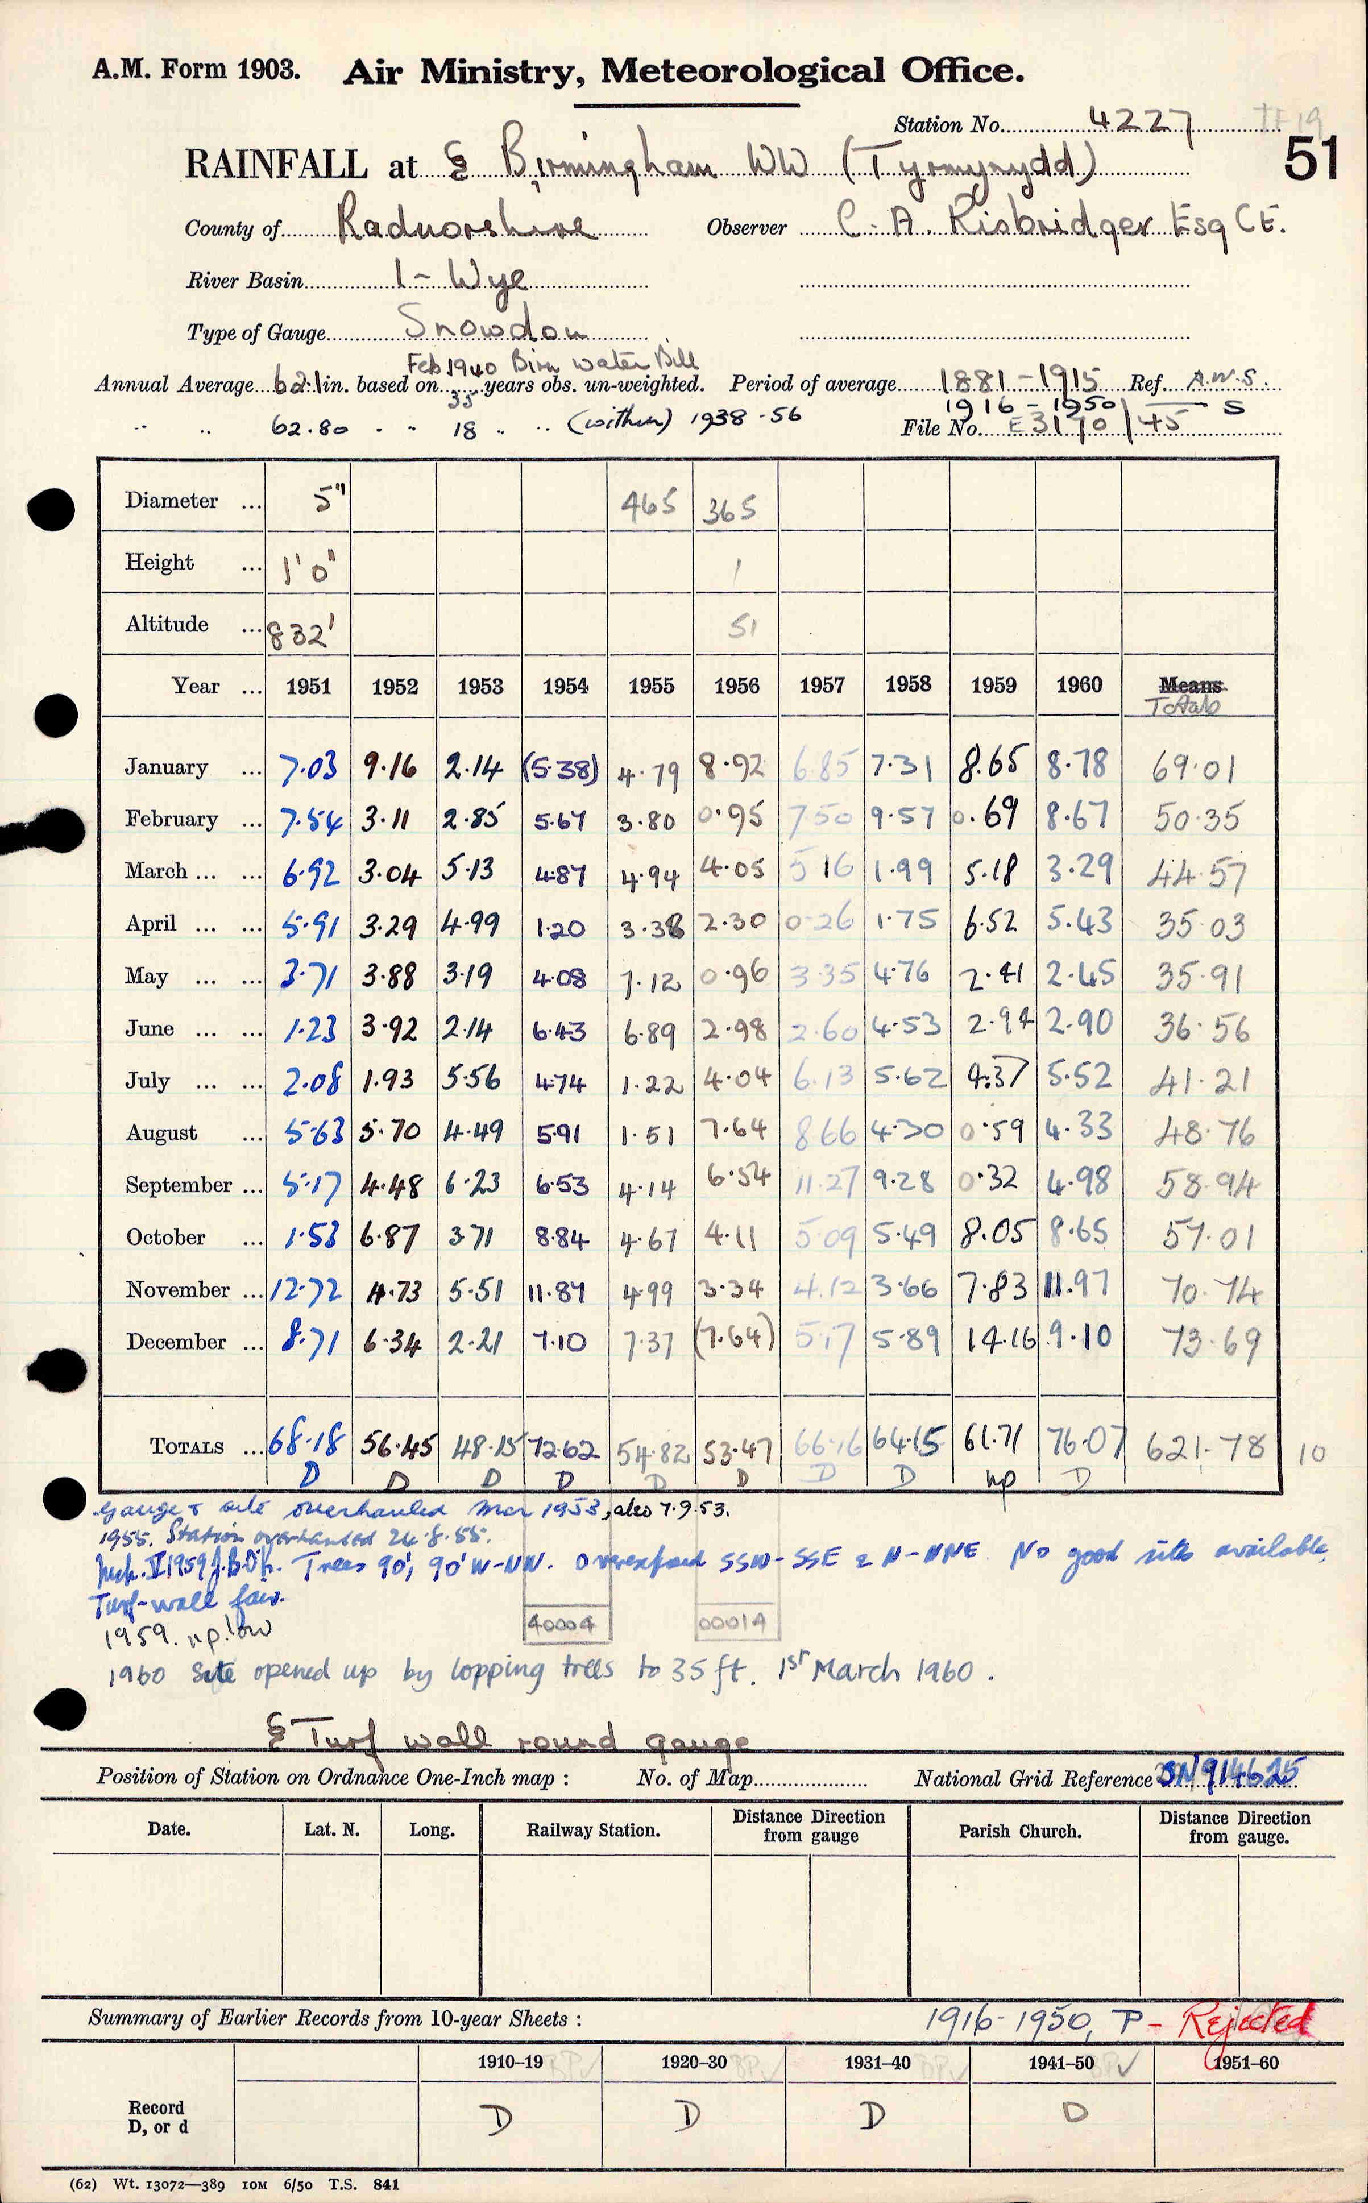 A.M. Form 1903. Air Ministry, Meteorological Office.
Station No. 4227
RAINFALL at Birmingham WW (Tyrmynydd) 51
County of Radnorshire Observer C. A. Risbridger Esq C E.
River Basin 1 - Wye
Type of Gauge Snowdon
Feb 1940 Birm Water Bill
Annual Average 62.1 in. based on 35 years obs. un-weighted. Period of average 1881-1915 Ref. A.W.S.
1916 - 1950 S
" " 62.80 " " 18 " " (written) 1938 - 56 File No. E3170/45
Diameter ... 5" 465 365
Height ... 1' 0" 1
Altitude ... 832' 51
Year ... 1951 1952 1953 1954 1955 1956 1957 1958 1959 1960 Means
Totals
January ... 7.03 9.16 2.14 (5.38) 4.79 8.92 6.85 7.31 8.65 8.78 69.01
February ... 7.54 3.11 2.85 5.67 3.80 0.95 7.50 9.57 0.69 8.67 50.35
March ... ... 6.92 3.04 5.13 4.87 4.94 4.05 5 16 1.99 5.18 3.29 44.57
April ... ... 5.91 3.29 4.99 1.20 3.38 2.30 0.26 1.75 6.52 5.43 35.03
May ... ... 3.71 3.88 3.19 4.08 7.12 0.96 3.35 4.76 2.41 2.45 35.91
June ... ... 1.23 3.92 2.14 6.43 6.89 2.98 2.60 4.53 2.94 2.90 36.56
July ... ... 2.08 1.93 5.56 4.74 1.22 4.04 6.13 5.62 4.37 5.52 41.21
August ... 5.63 5.70 4.49 5.91 1.51 7.64 8 66 4.30 0.59 4.33 48.76
September ... 5.17 4.48 6.23 6.53 4.14 6.54 11.27 9.28 0.32 4.98 58.94
October ... 1.53 6.87 3.71 8.84 4.67 4.11 5.09 5.49 8.05 8.65 57.01
November ... 12.72 4.73 5.51 11.87 4.99 3.34 4.12 3.66 7.83 11.97 70.74
December ... 8.71 6.34 2.21 7.10 7.37 (7.64) 5.17 5.89 14.16 9.10 73.69
TOTALS ... 68.18 56.45 48.15 72.62 54.82 53.47 66.16 64.15 61.71 76.07 621.78 10
D D D D D D D D np D
Gauge & site overhauled Mar 1953, also 7.9.53.
1955. Station overhauled 24.8.55.
Trees 90', 90' W-NW. Overexposed SSW-SSE & N-NNE. No good site available,
Turf-wall fair.
1959. np. low 40004 00014
1960 Site opened up by lopping trees to 35 ft. 1st March 1960.
Turf wall round gauge
Position of Station on Ordnance One-Inch map : No. of Map National Grid Reference SN 914625
Date. Lat. N. Long. Railway Station. Distance Direction from gauge Parish Church. Distance Direction from gauge.
Summary of Earlier Records from 10-year Sheets : 1916-1950, P - Rejected
1910-19 1920-30 1931-40 1941-50 1951-60
Record
D, or d D D D D
(62) Wt. 13072—389 10M 6/50 T.S. 841